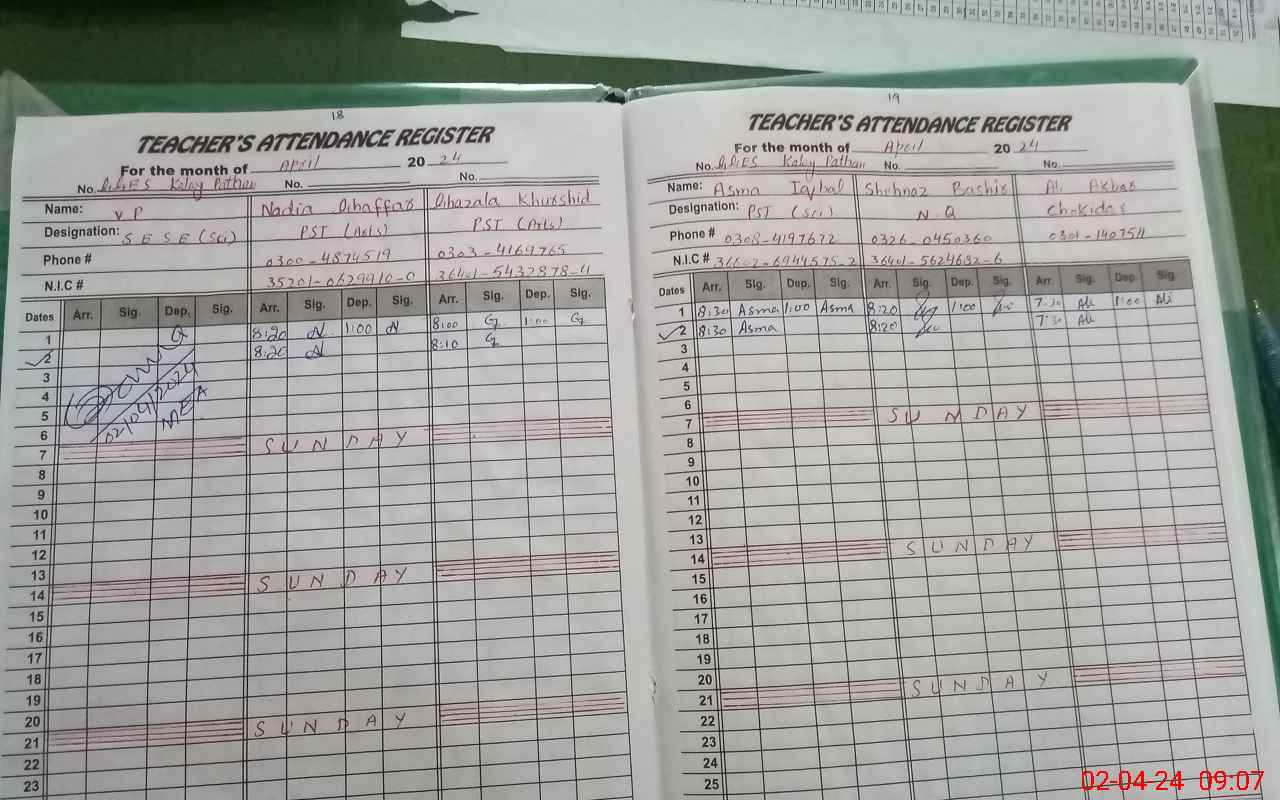 18
TEACHER'S ATTENDANCE REGISTER
For the month of April 20 24
No. G.G.E.S Kalay Pathan No. No.
Name: V P Nadia Ghaffar Ghazala Khurshid
Designation: S E S E (Sci) PST (Arts) PST (Arts)
Phone # 0300-4874519 0303-4169765
N.I.C # 35201-0629910-0 36401-5432878-4
Dates Arr. Sig. Dep. Sig. Arr. Sig. Dep. Sig. Arr. Sig. Dep. Sig.
1 8:20 N 1:00 N 8:00 G 1:00 G
2 8:20 N 8:10 G
3
4
5 02/04/2024
MEA
6
7 SUNDAY
8
9
10
11
12
13
14 SUNDAY
15
16
17
18
19
20
21 SUNDAY
22
23
19
TEACHER'S ATTENDANCE REGISTER
For the month of April 20 24
No. G.G.E.S Kalay Pathan No. No.
Name: Asma Iqbal Shehnaz Bashir Ali Akbar
Designation: PST (Sci) N.Q Chokidar
Phone # 0308-4197672 0326-0450360 0301-140754
N.I.C # 36602-6944575-2 36401-5624682-6
Dates Arr. Sig. Dep. Sig. Arr. Sig. Dep. Sig. Arr. Sig. Dep. Sig.
1 8:30 Asma 1:00 Asma 8:20 1:00 7:30 Ali 1:00 Ali
2 8:30 Asma 8:20 7:30 Ali
3
4
5
6
7 SUNDAY
8
9
10
11
12
13
14 SUNDAY
15
16
17
18
19
20
21 SUNDAY
22
23
24
25
02-04-24 09:07